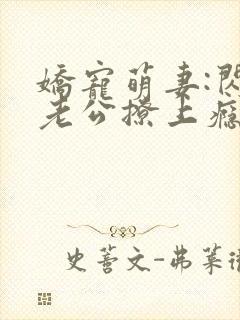 嬌寵萌妻:閃
老公撩上癮
史蓄文-弗萊